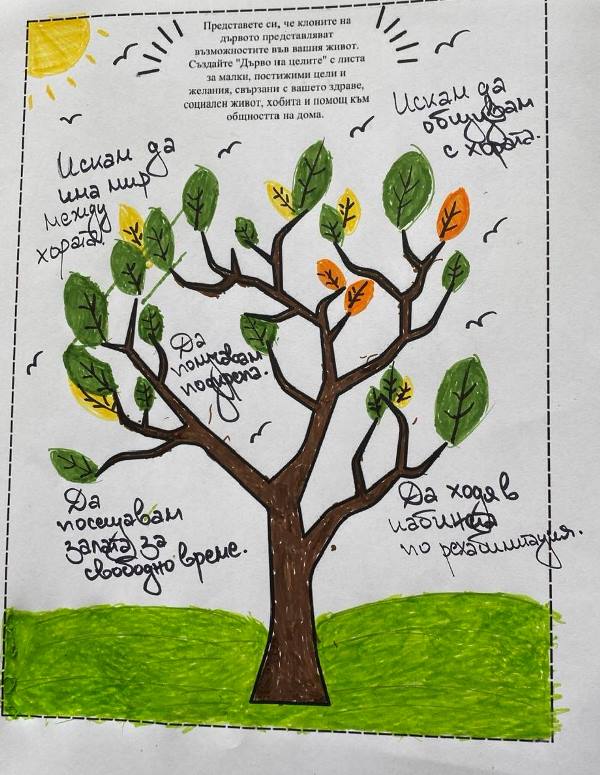 Представете си, че клоните на
дървото представляват
възможностите във вашия живот.
Създайте "Дърво на целите" с листа
за малки, постижими цели и
желания, свързани с вашето здраве,
социален живот, хобита и помощ към
общността на дома.
Искам да
общувам
с хората.
Искам да
има мир
между
хората.
Да
получавам
подкрепа.
Да
посещавам
залата за
свободно време.
Да ходя в
кабинета
по рехабилитация.